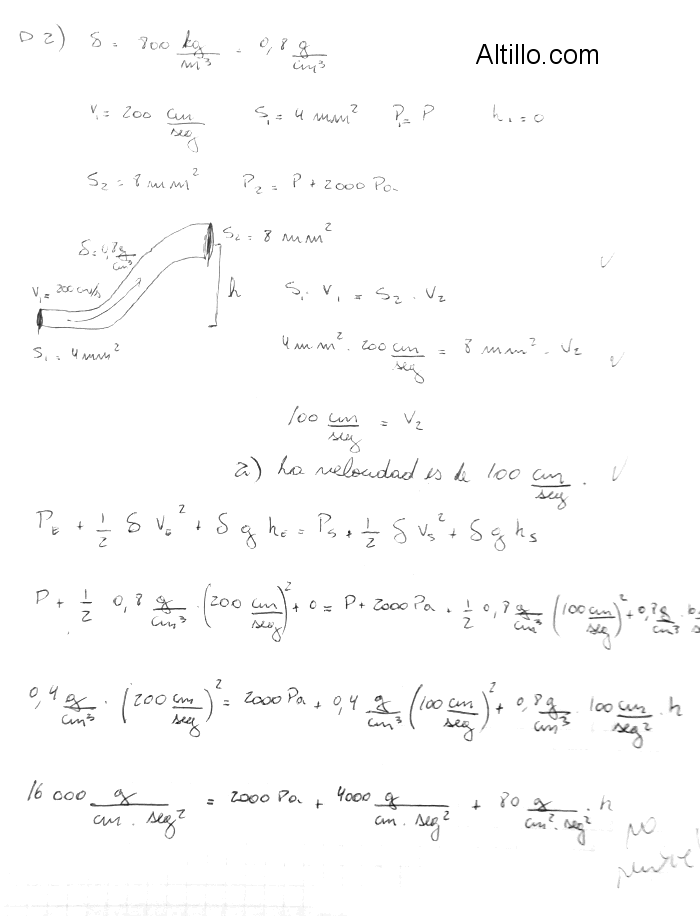 D 2) δ = 800 kg/m³ = 0,8 g/cm³
Altillo.com
V₁ = 200 cm/seg S₁ = 4 mm² P₁ = P h₁ = 0
S₂ = 8 mm² P₂ = P + 2000 Pa
S₂ = 8 mm²
δ = 0,8 g/cm³
V₁ = 200 cm/s
h
S₁ = 4 mm²
S₁ · V₁ = S₂ · V₂
4 mm² · 200 cm/seg = 8 mm² · V₂
100 cm/seg = V₂
a) La velocidad es de 100 cm/seg.
P_E + 1/2 δ V_E² + δ g h_E = P_S + 1/2 δ V_S² + δ g h_S
P + 1/2 0,8 g/cm³ · (200 cm/seg)² + 0 = P + 2000 Pa + 1/2 0,8 g/cm³ (100 cm/seg)² + 0,8 g/cm³ ·
0,4 g/cm³ · (200 cm/seg)² = 2000 Pa + 0,4 g/cm³ (100 cm/seg)² + 0,8 g/cm³ 100 cm/seg² · h
16 000 g/cm · seg² = 2000 Pa + 4000 g/cm · seg² + 80 g/cm² · seg² · h
no